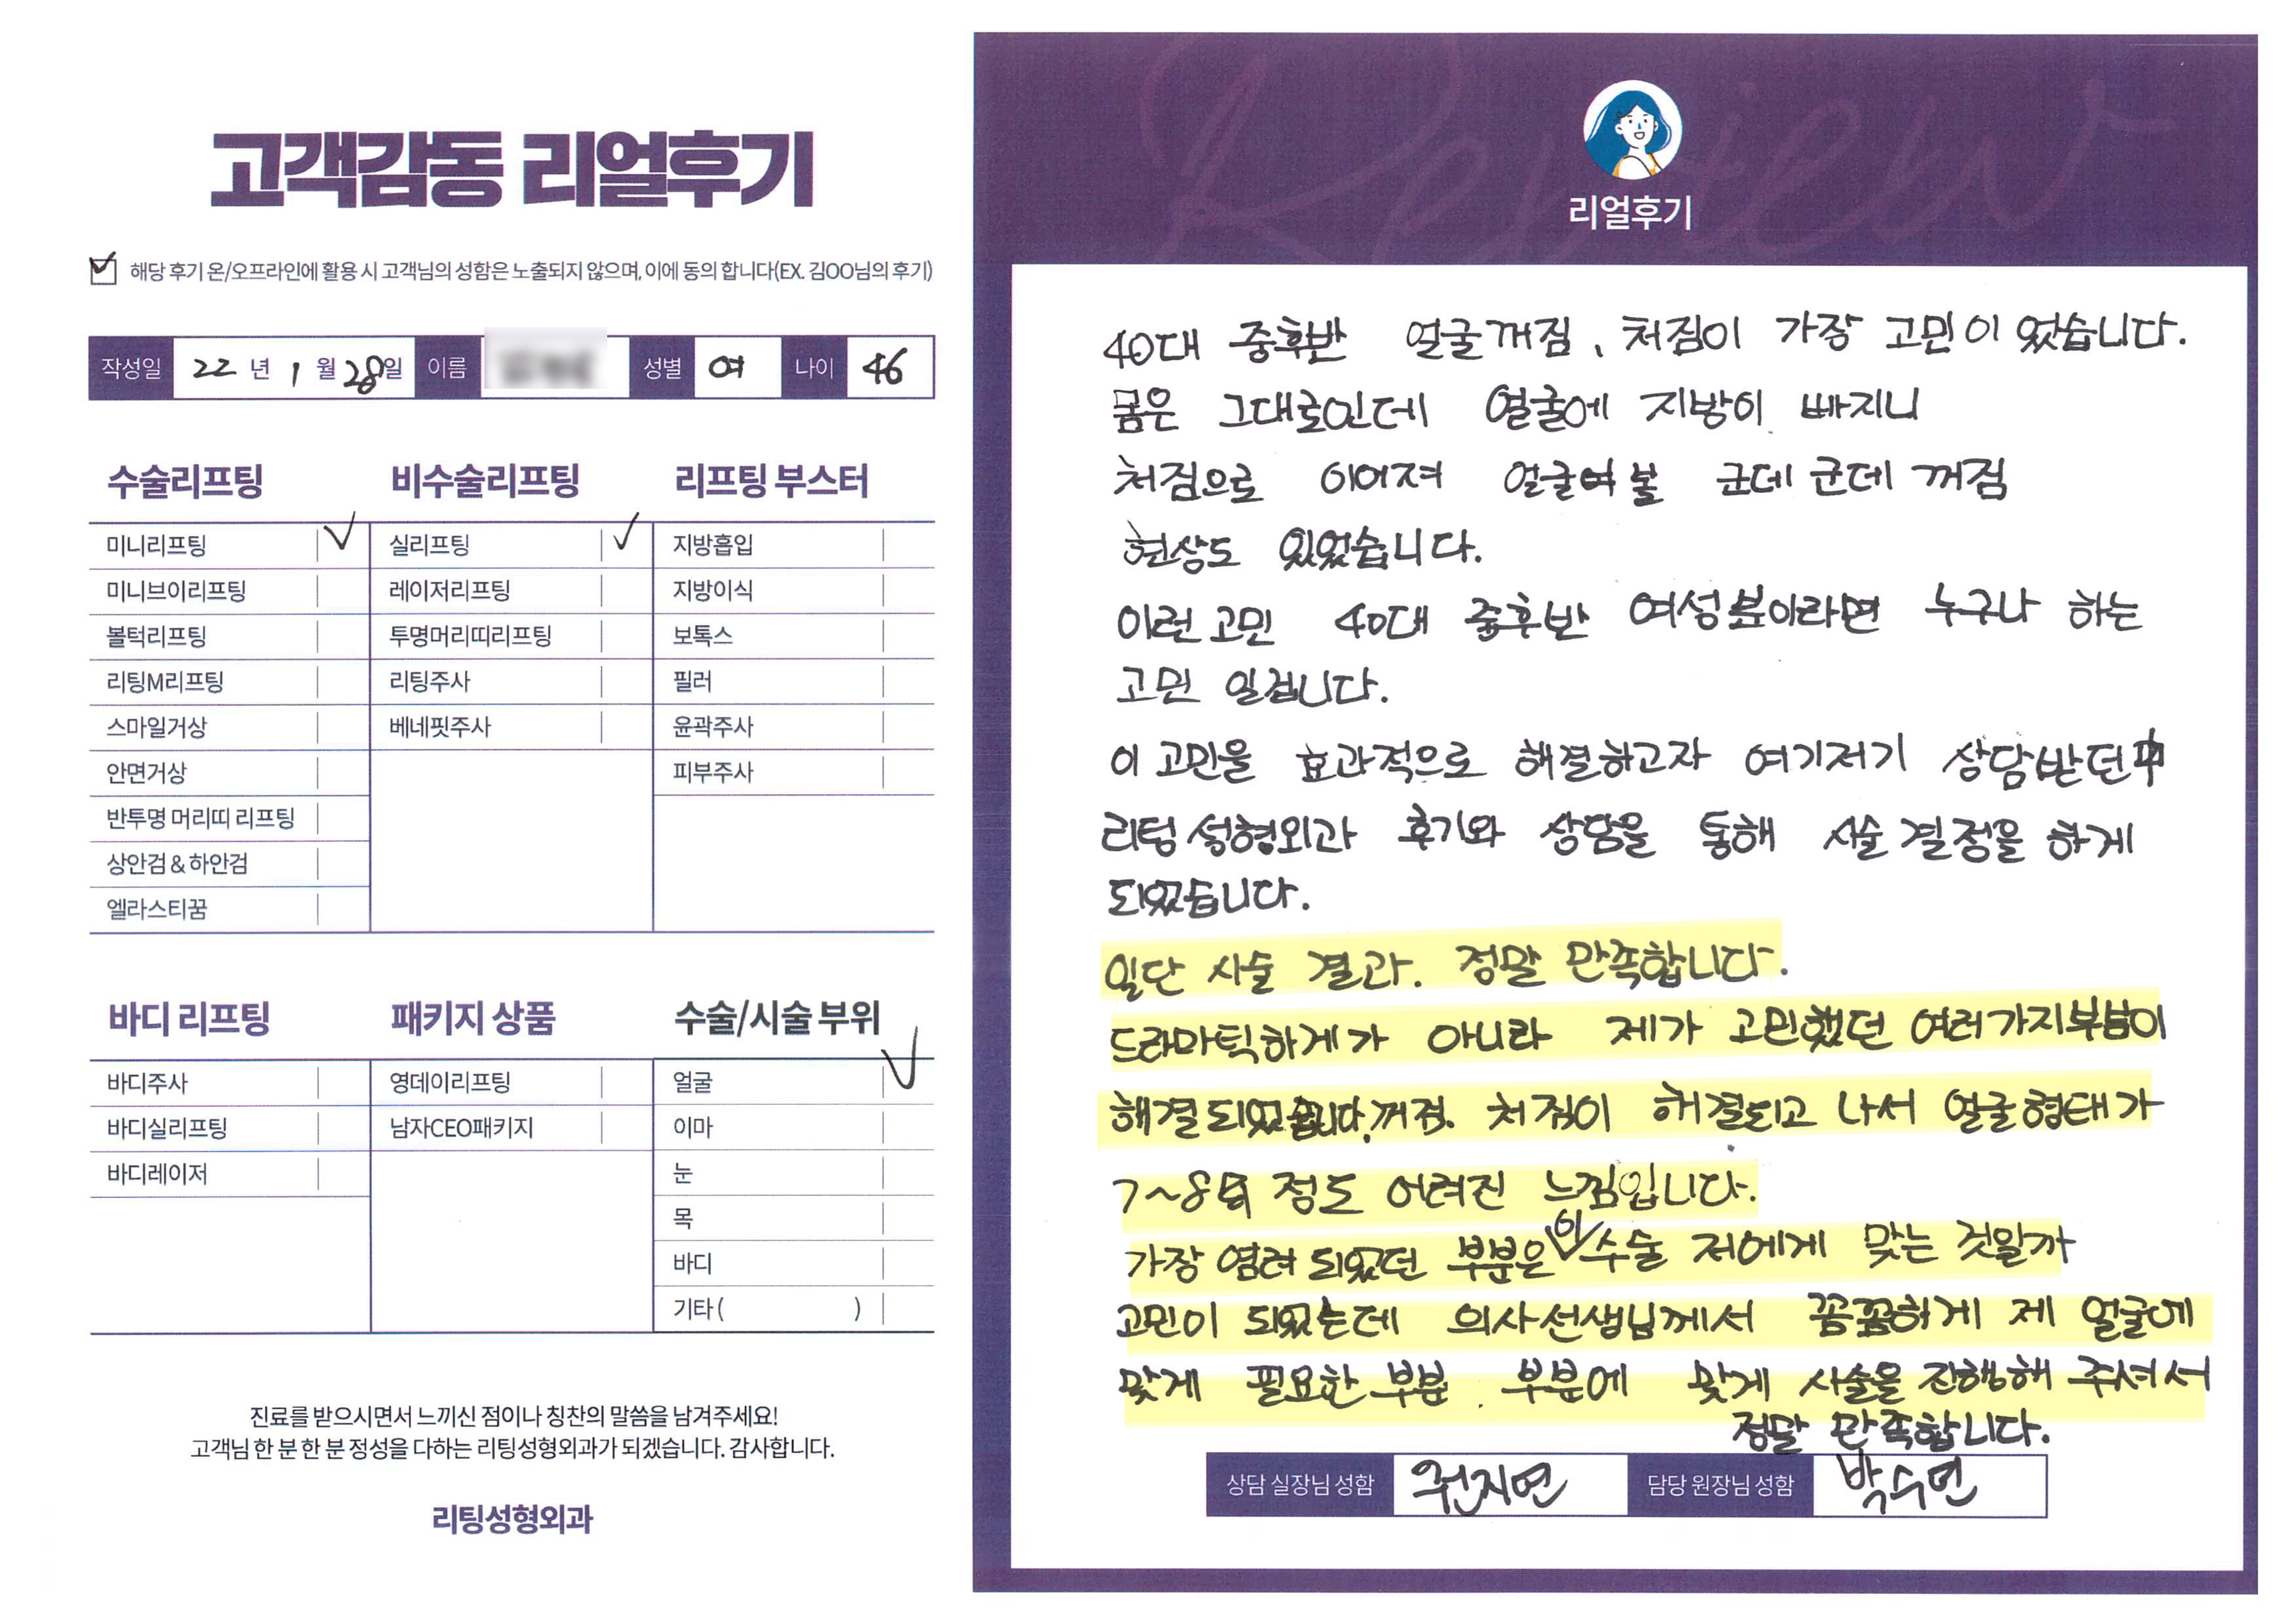 고객감동 리얼후기
해당 후기 온/오프라인에 활용 시 고객님의 성함은 노출되지 않으며, 이에 동의 합니다(EX. 김OO님의 후기)
작성일 22 년 1 월 28일 이름 성별 여 나이 46
수술리프팅
미니리프팅
미니브이리프팅
볼턱리프팅
리팅M리프팅
스마일거상
안면거상
반투명 머리띠 리프팅
상안검 & 하안검
엘라스티꿈
비수술리프팅
실리프팅
레이저리프팅
투명머리띠리프팅
리팅주사
베네핏주사
리프팅 부스터
지방흡입
지방이식
보톡스
필러
윤곽주사
피부주사
바디 리프팅
바디주사
바디실리프팅
바디레이저
패키지 상품
영데이리프팅
남자CEO패키지
수술/시술 부위
얼굴
이마
눈
목
바디
기타 ( )
진료를 받으시면서 느끼신 점이나 칭찬의 말씀을 남겨주세요!
고객님 한 분 한 분 정성을 다하는 리팅성형외과가 되겠습니다. 감사합니다.
리팅성형외과
Review
리얼후기
40대 중후반 얼굴꺼짐, 처짐이 가장 고민이 었습니다.
몸은 그대로인데 얼굴에 지방이 빠지니
처짐으로 이어져 얼굴여 볼 군데 군데 꺼짐
현상도 있었습니다.
이런 고민 40대 중후반 여성분이라면 누구나 하는
고민 일겁니다.
이 고민을 효과적으로 해결하고자 여기저기 상담받던中
리팅성형외과 후기와 상담을 통해 시술 결정을 하게
되었습니다.
일단 시술 결과. 정말 만족합니다.
드라마틱하게가 아니라 제가 고민했던 여러가지부분이
해결되었습니다. 꺼짐. 처짐이 해결되고 나서 얼굴형태가
7~8 정도 어려진 느낌입니다.
가장 염려 되었던 부분은 이 수술 저에게 맞는 것일까
고민이 되었는데 의사선생님께서 꼼꼼하게 제 얼굴에
맞게 필요한 부분. 부분에 맞게 시술을 진행해 주셔서
정말 만족합니다.
상담 실장님 성함 권지연 담당 원장님 성함 박수연